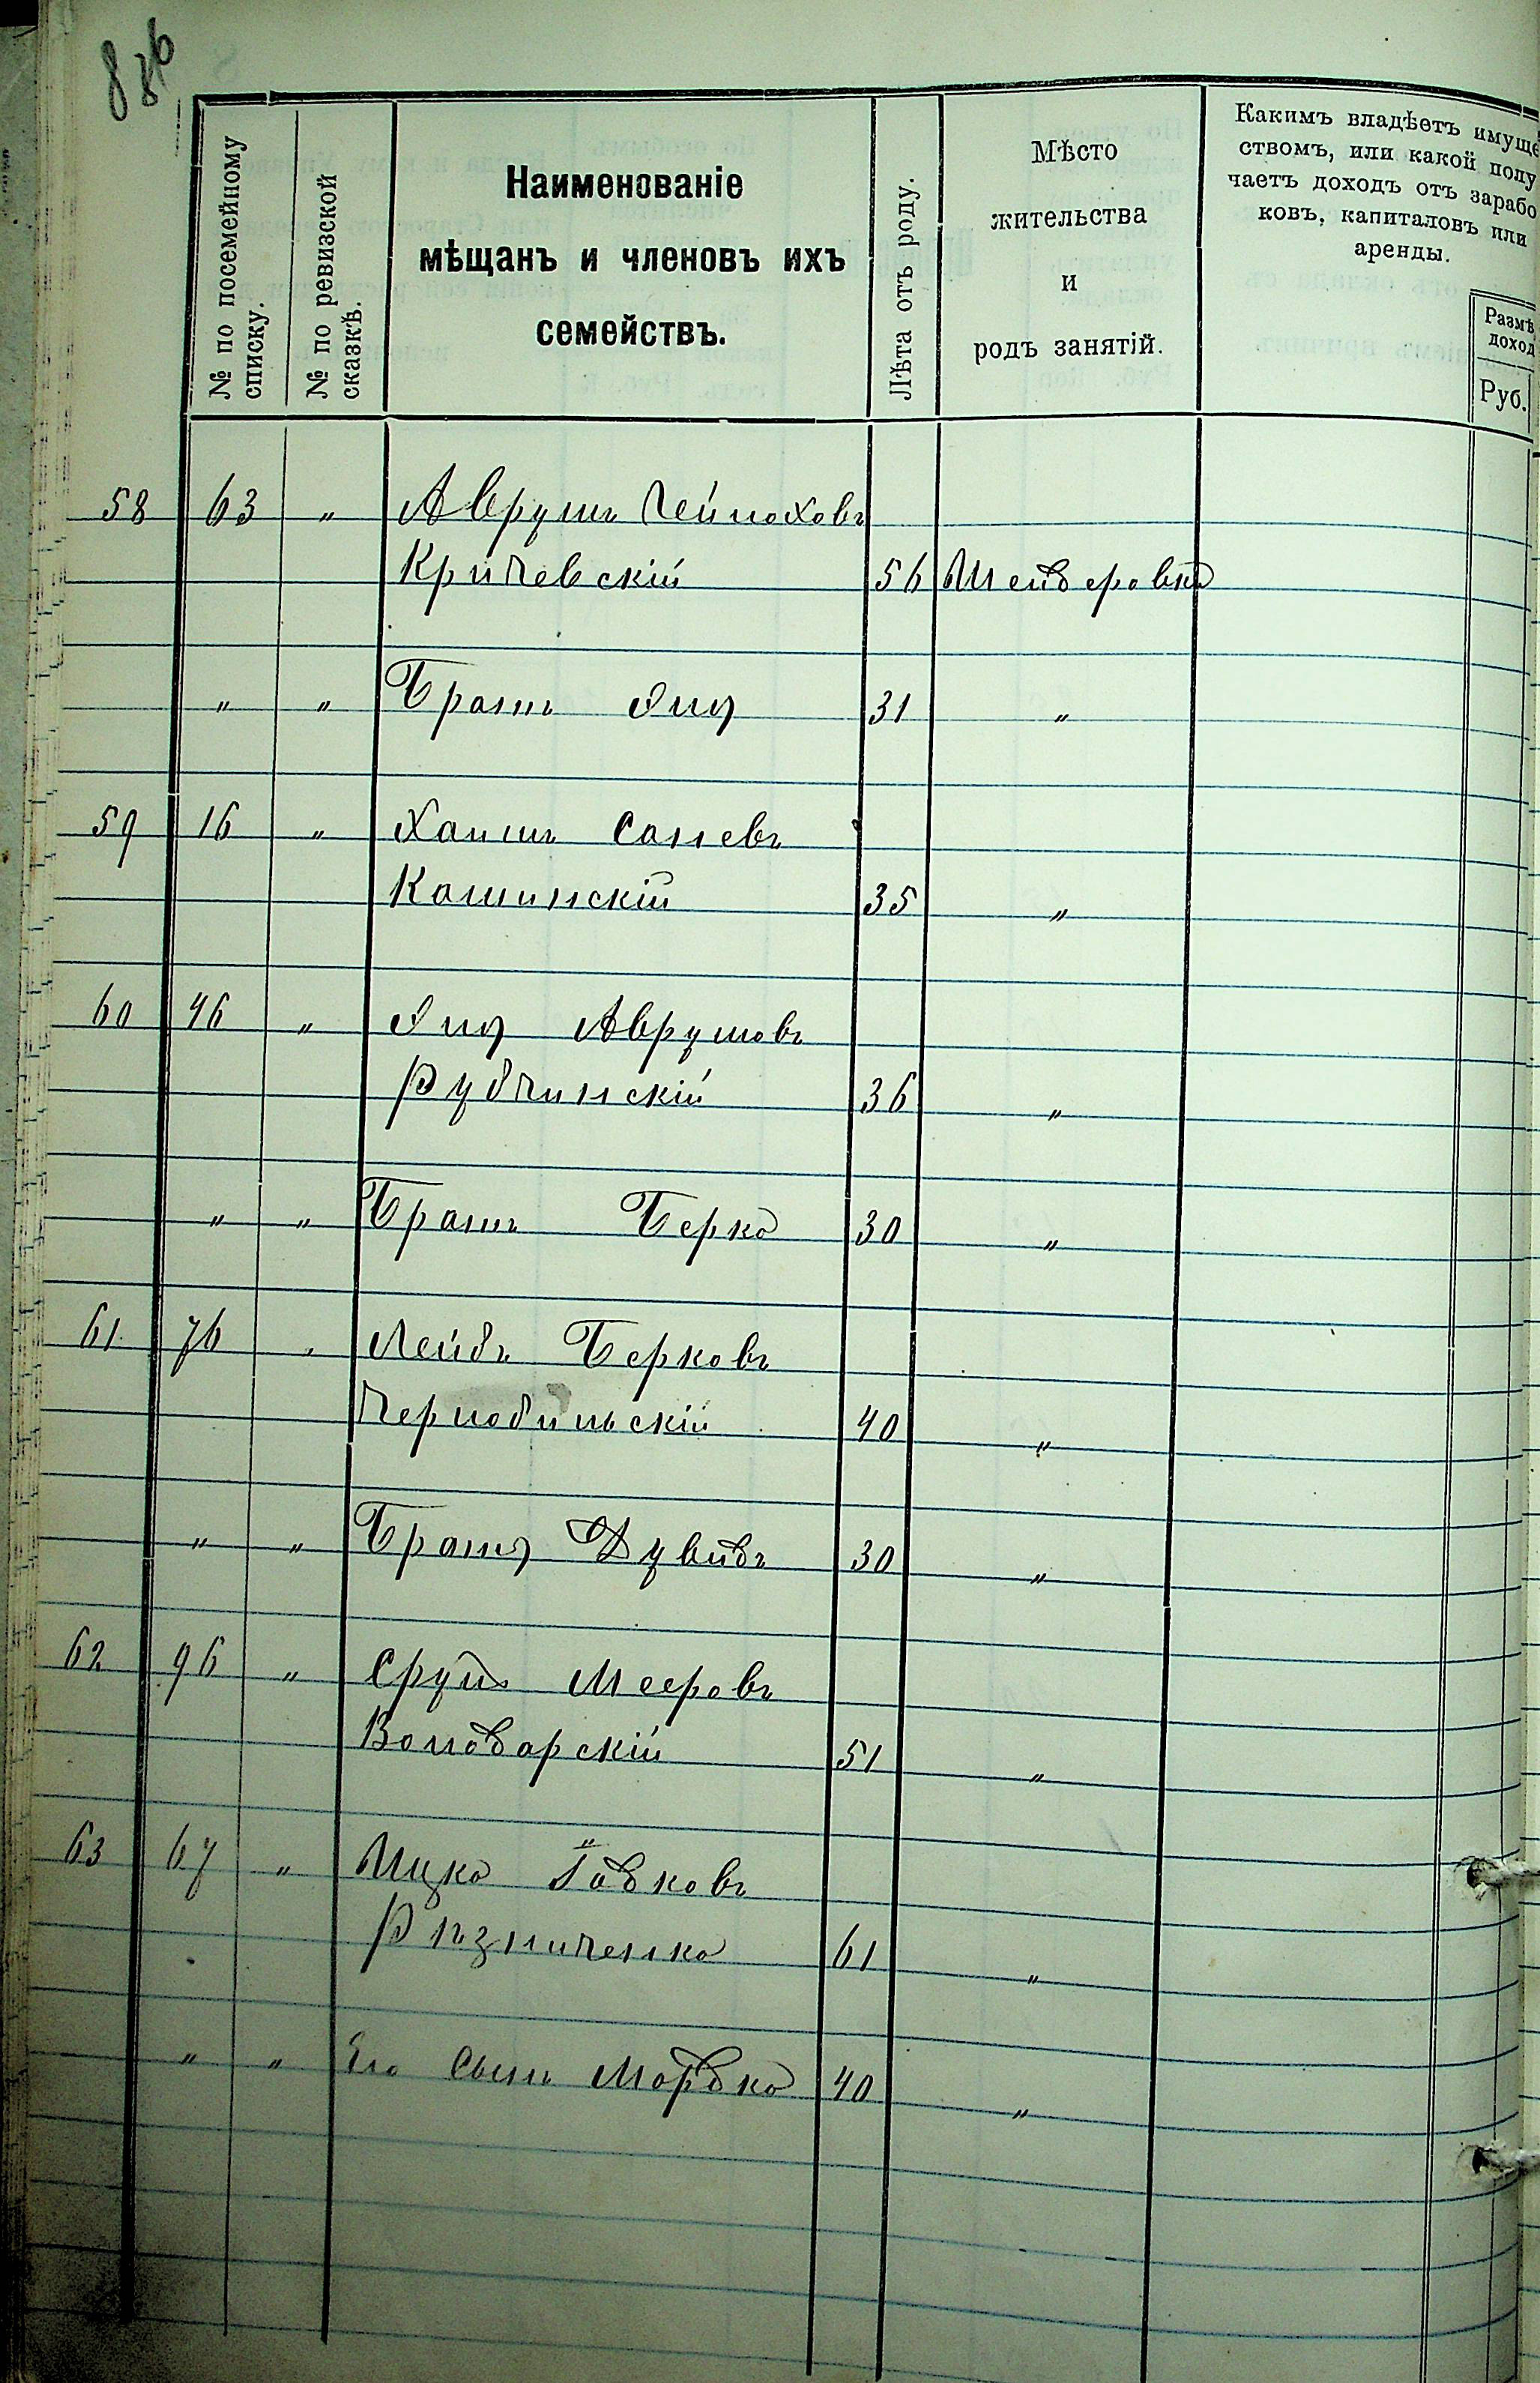 836
№ по посемейному списку.
№ по ревизской сказкѣ.
Наименованіе
мѣщанъ и членовъ ихъ
семействъ.
Лѣта отъ роду.
Мѣсто
жительства
и
родъ занятій.
Какимъ владѣетъ имуще
ствомъ, или какой полу
чаетъ доходъ отъ зарабо
ковъ, капиталовъ или
аренды.
Размѣ
доход
Руб.
58 63 „ Аврумъ Чейноховъ
Кричевскій 56 Шендеровка
„ „ Братъ Янъ 31 „
59 16 „ Хаимъ Саневъ
Кашинскій 35 „
60 46 „ Янъ Аврумовъ
Рубчинскій 36 „
„ „ Братъ Берко 30 „
61 76 „ Лейбъ Берковъ
Чернобильскій 40 „
„ „ Братъ Дувидъ 30 „
62 96 „ Сруль Мееровъ
Володарскій 51 „
63 67 „ Ицко Іовковъ
Рѣзниченко 61 „
„ „ Его сынъ Мордко 40 „